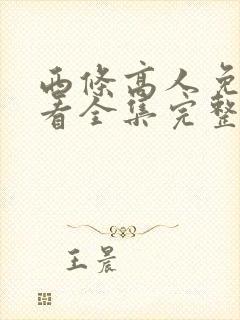 西條高人免
看全集完整
王晨